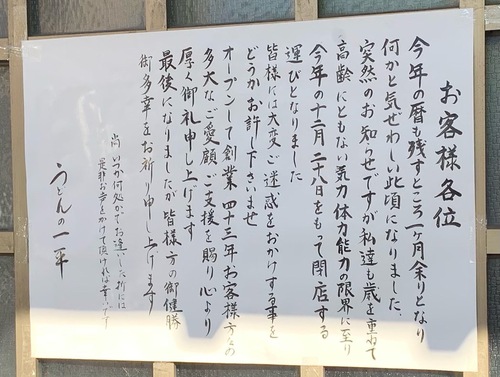 お客様各位
今年の暦も残すところ一ヶ月余りとなり
何かと気ぜわしい此頃になりました、
突然のお知らせですが私達も歳を重ねて
高齢にともない気力体力能力の限界に至り
今年の十二月二十八日をもって閉店する
運びとなりました
皆様には大変ご迷惑をおかけする事を
どうかお許し下さいませ
オープンして創業四十三年お客様方々の
多大なご愛顧ご支援を賜り心より
厚く御礼申し上げます
最後になりましたが皆様方の御健勝
御多幸をお祈り申し上げます
尚いつか何処かでお逢いした折には
是非お声をかけて頂ければ幸いです
うどんの一平